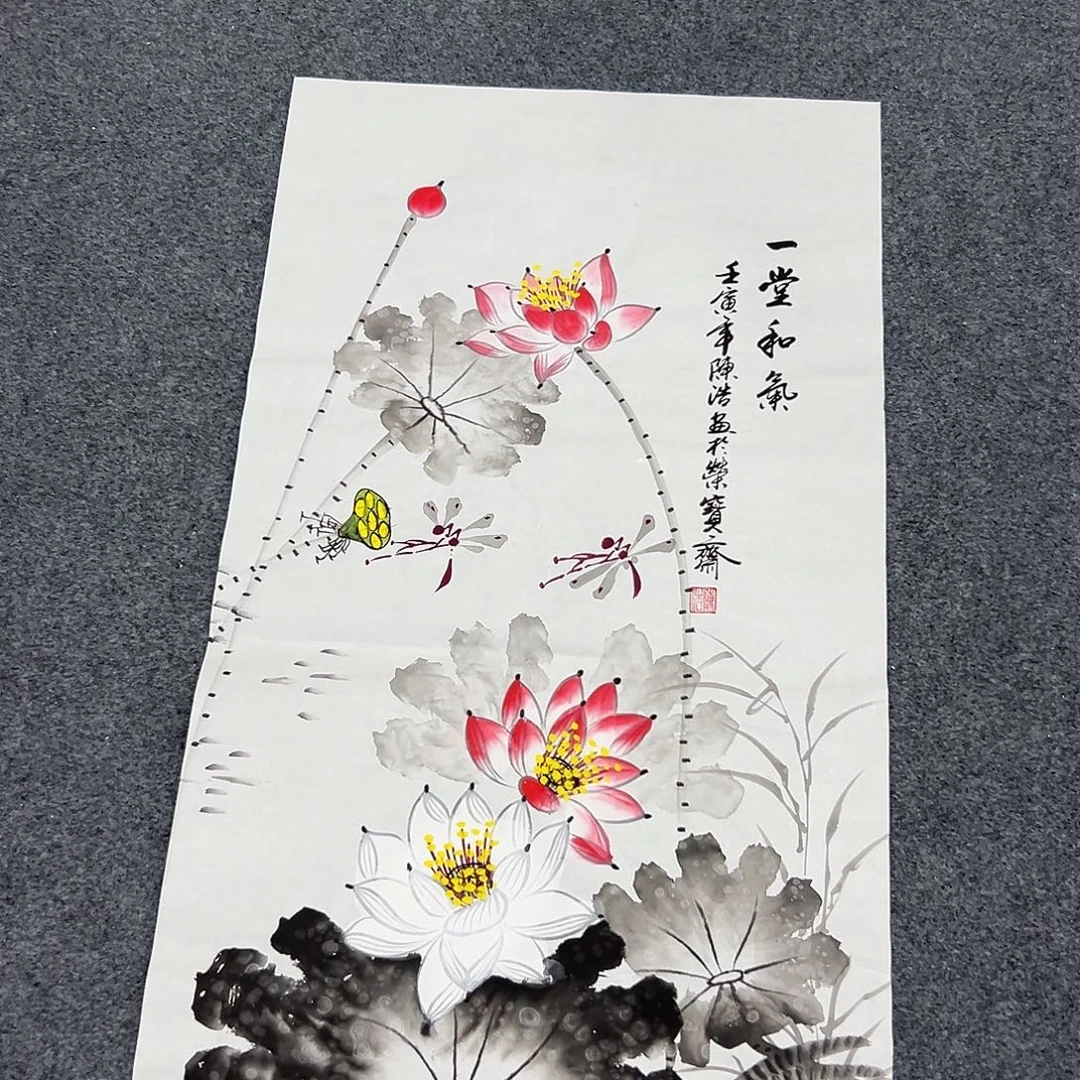 一堂和氣
壬寅年陳浩画於榮寶齋